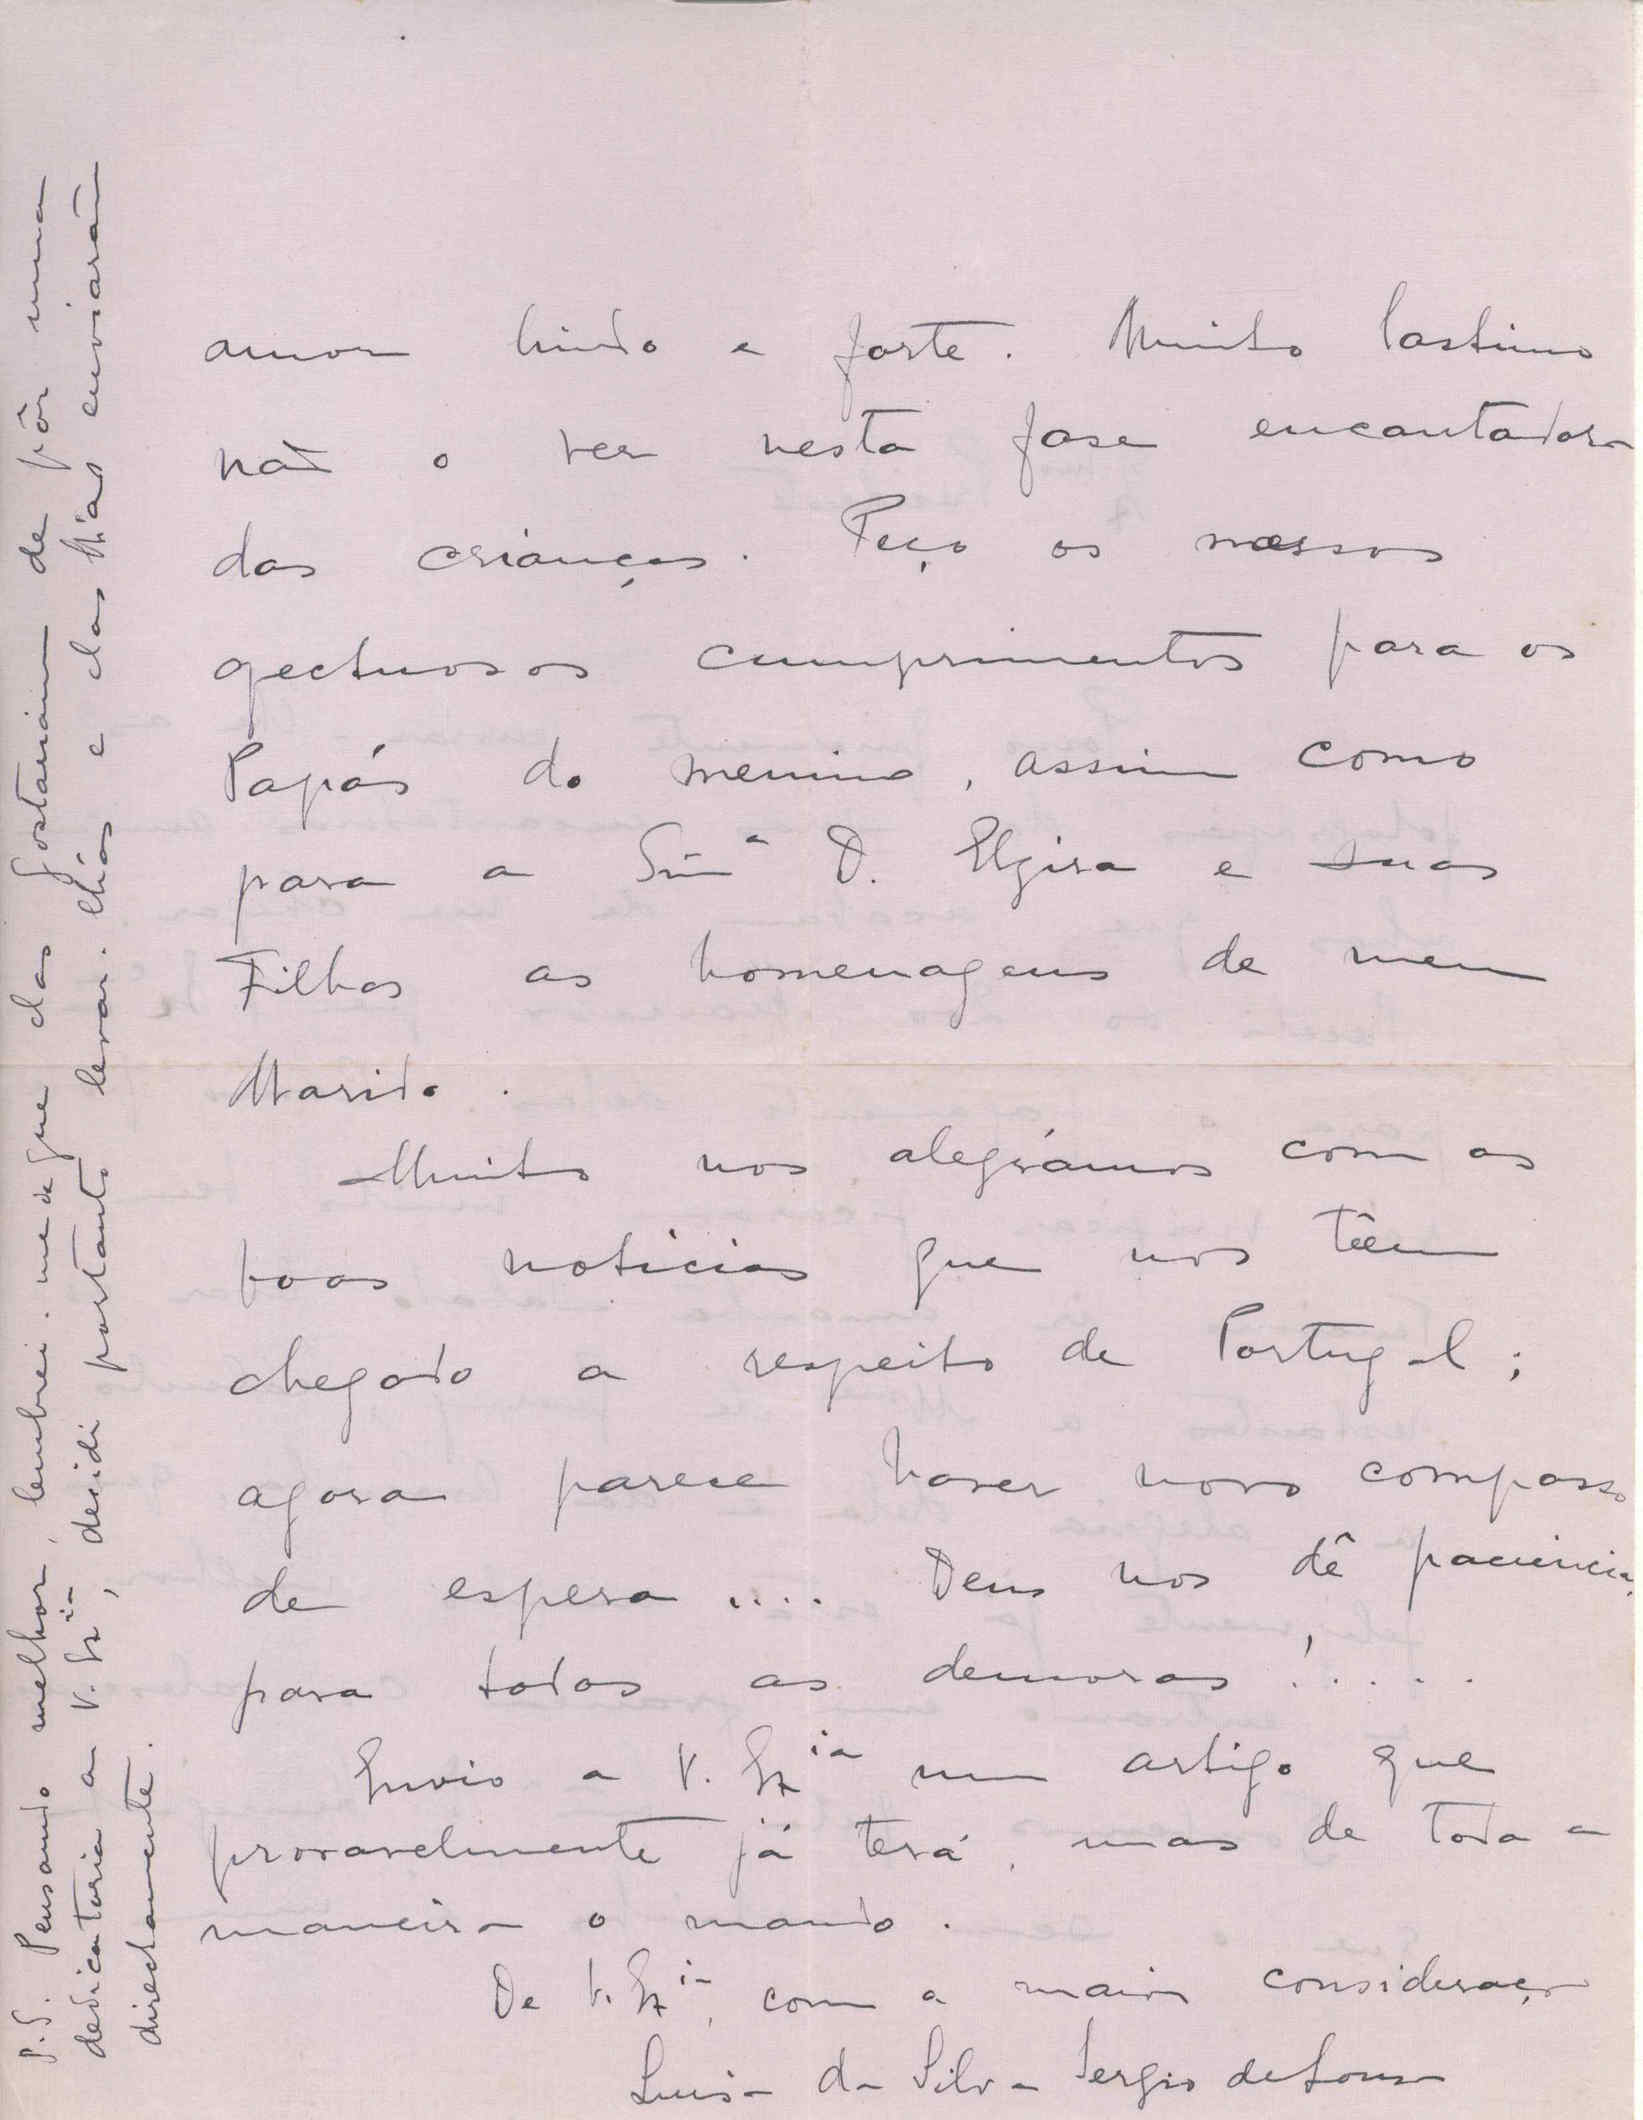 amor lindo e forte. Muito lastimo
não o ver nesta fase encantadora
das crianças. Peço os nossos
afectuosos cumprimentos para os
Papás do menino, assim como
para a Snrª D. Elzira e suas
Filhas as homenagens de meu
Marido.
Muito nos alegrámos com as
boas noticias que nos têem
chegado a respeito de Portugal;
agora parece haver novo compasso
de espera .... Deus nos dê paciencia,
para todas as demoras!....
Envio a V. Exia um artigo que
provavelmente já terá, mas de toda a
maneira o mando.
De V. Exia, com a maior consideração
Luisa da Silva Sergio de Sousa
P.S. Pensando melhor, lembrei-me de que elas gostariam de pôr uma
dedicatoria a V. Exia, decidi portanto levar-lhas e elas Mas enviarão
directamente.